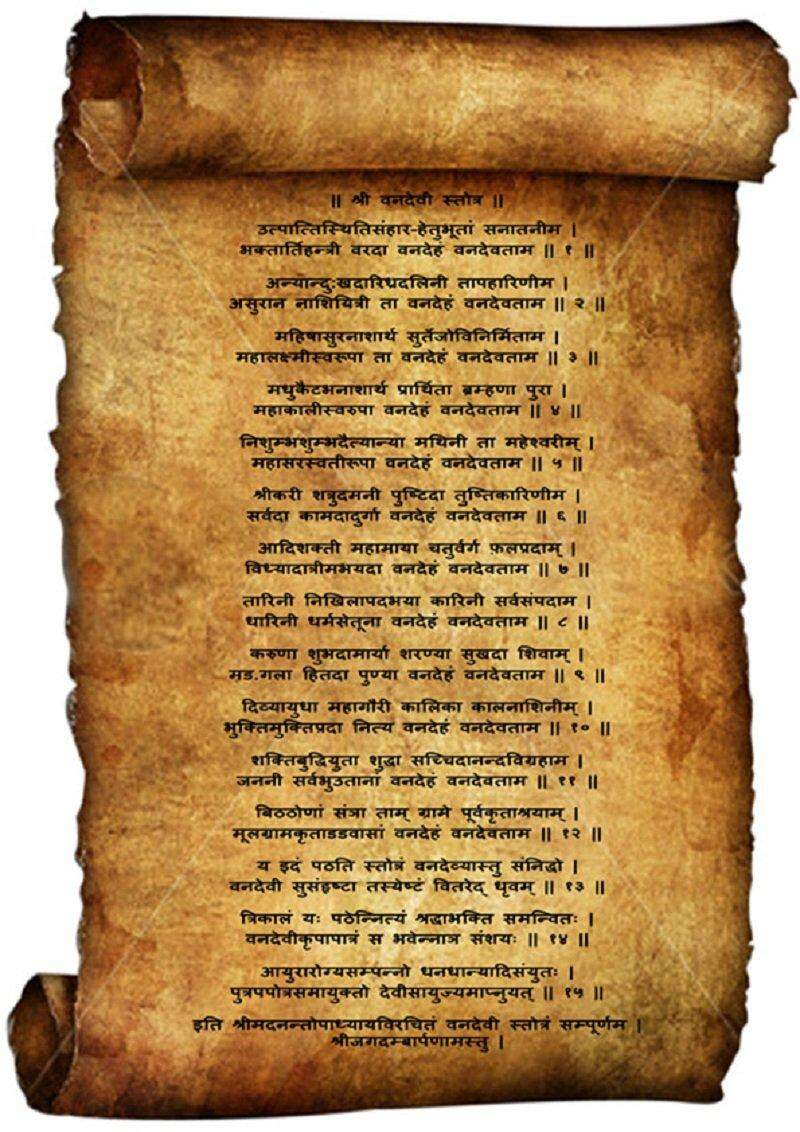 || श्री वनदेवी स्तोत्र ||
उत्पात्तिस्थितिसंहार-हेतुभूतां सनातनीम |
भक्तार्तिहन्त्री वरदा वनदेहं वनदेवताम || १ ||
अन्यान्दु:खदारिध्रदलिनी तापहारिणीम |
असुरान नाशियित्री ता वनदेहं वनदेवताम || २ ||
महिषासुरनाशार्थ सुर्तेजोविनिर्मिताम |
महालक्ष्मीस्वरूपा ता वनदेहं वनदेवताम || ३ ||
मधुकैटभनाशार्थ प्रार्थिता ब्रम्हणा पुरा |
महाकालीस्वरुपा वनदेहं वनदेवताम || ४ ||
निशुम्भशुम्भदैत्यान्या मथिनी ता महेश्वरीम् |
महासरस्वतीरूपा वनदेहं वनदेवताम || ५ ||
श्रीकरी शत्रुदमनी पुष्टिदा तुष्तिकारिणीम |
सर्वदा कामदादुर्गा वनदेहं वनदेवताम || ६ ||
आदिशक्ती महामाया चतुर्वर्ग फ़लप्रदाम् |
विध्यादात्रीमभयदा वनदेहं वनदेवताम || ७ ||
तारिनी निखिलापदभया कारिनी सर्वसंपदाम |
धारिनी धर्मसेतूना वनदेहं वनदेवताम || ८ ||
करुणा शुभदामार्या शरण्या सुखदा शिवाम् |
मड.गला हितदा पुण्या वनदेहं वनदेवताम || ९ ||
दिव्यायुधा महागौरी कालिका कालनाशिनीम् |
भुक्तिमुक्तिप्रदा नित्य वनदेहं वनदेवताम || १० ||
शक्तिबुद्धियुता शुद्धा सच्चिदानन्दविग्रहाम |
जननी सर्वभुउतानां वनदेहं वनदेवताम || ११ ||
बिठठोणां संत्रा ताम् ग्रामे पूर्वकृताश्रयाम् |
मूलग्रामकृताडडवासां वनदेहं वनदेवताम || १२ ||
य इदं पठति स्तोत्रं वनदेव्यास्तु संनिद्धो |
वनदेवी सुसंइष्टा तस्येष्टं वितरेद् धृवम् || १३ ||
त्रिकालं यः पठेन्नित्यं श्रद्धाभक्ति समन्वितः |
वनदेवीकृपापात्रं स भवेन्नात्र संशयः || १४ ||
आयुरारोग्यसम्पन्नो धनधान्यादिसंयुतः |
पुत्रपपोत्रसमायुक्तो देवीसायुज्यमाप्नुयत् || १५ ||
इति श्रीमदनन्तोपाध्यायविरचितं वनदेवी स्तोत्रं सम्पूर्णम |
श्रीजगदम्बार्पणामस्तु |